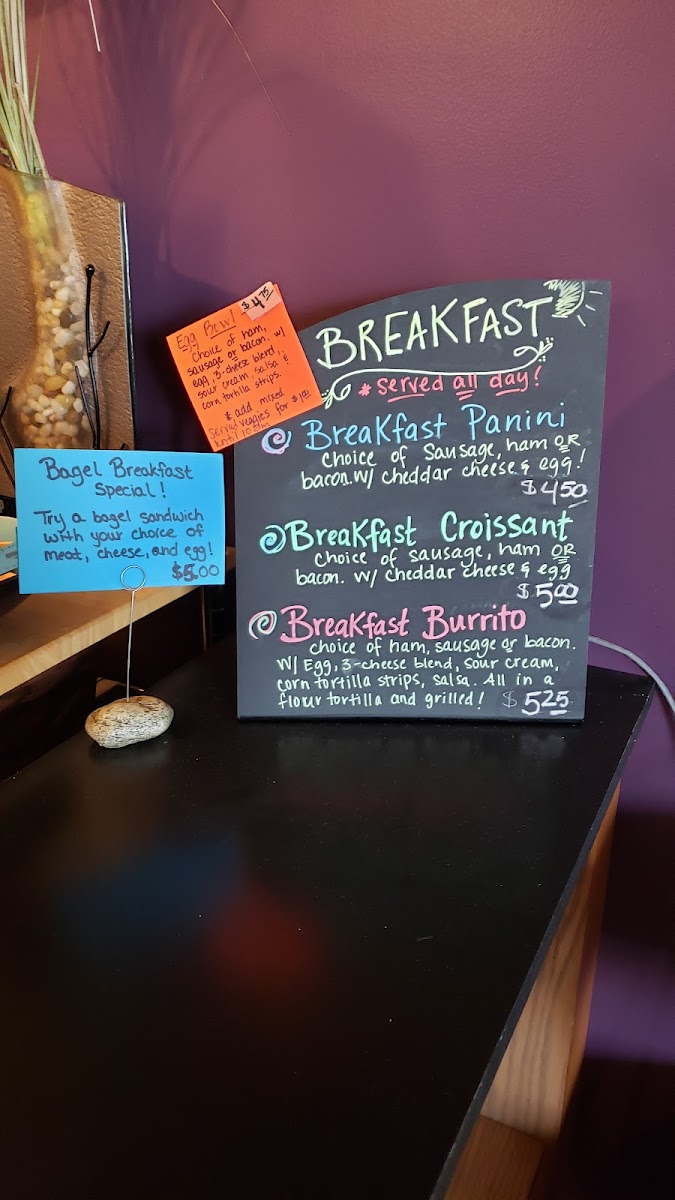 Egg Bowl
$4.75
Choice of ham,
sausage or bacon. w/
egg, 3-cheese blend,
sour cream, salsa, &
corn tortilla strips.
* add mixed
veggies for $1.00
served
until
BREAKFAST
* served all day!
Breakfast Panini
choice of Sausage, ham OR
bacon. w/ cheddar cheese & egg!
$4.50
Breakfast Croissant
choice of sausage, ham OR
bacon. w/ cheddar cheese & egg
$5.00
Breakfast Burrito
choice of ham, sausage or bacon.
w/ Egg, 3-cheese blend, sour cream,
corn tortilla strips, salsa. All in a
flour tortilla and grilled! $5.25
Bagel Breakfast
Special!
Try a bagel sandwich
with your choice of
meat, cheese, and egg!
$5.00